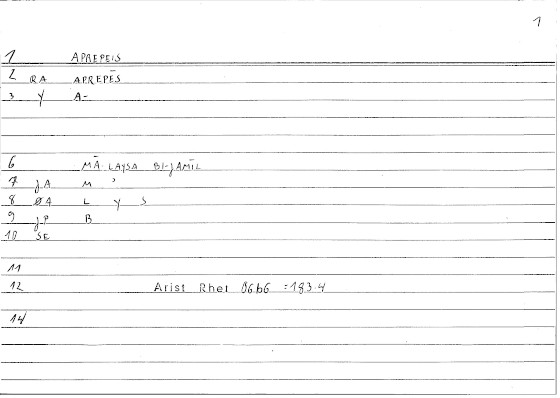 1
1 APREPEIS
2 RA APREPĒS
3 Y A-
6 MĀ LAYSA BI-JAMĪL
7 JA M
8 ØA L Y S
9 JP B
10 SE
11
12 Arist Rhet 06b6 =183.4
14